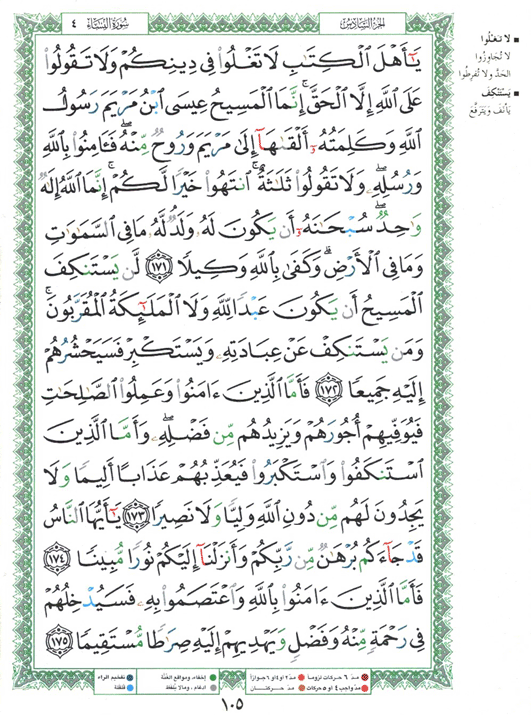 الجزء السادس
سورة النساء ٤
يَٰٓأَهْلَ ٱلْكِتَٰبِ لَا تَغْلُوا۟ فِى دِينِكُمْ وَلَا تَقُولُوا۟
عَلَى ٱللَّهِ إِلَّا ٱلْحَقَّ ۚ إِنَّمَا ٱلْمَسِيحُ عِيسَى ٱبْنُ مَرْيَمَ رَسُولُ
ٱللَّهِ وَكَلِمَتُهُۥٓ أَلْقَىٰهَآ إِلَىٰ مَرْيَمَ وَرُوحٌ مِّنْهُ ۖ فَـَٔامِنُوا۟ بِٱللَّهِ
وَرُسُلِهِۦ ۖ وَلَا تَقُولُوا۟ ثَلَٰثَةٌ ۚ ٱنتَهُوا۟ خَيْرًا لَّكُمْ ۚ إِنَّمَا ٱللَّهُ إِلَٰهٌ
وَٰحِدٌ ۖ سُبْحَٰنَهُۥٓ أَن يَكُونَ لَهُۥ وَلَدٌ ۘ لَّهُۥ مَا فِى ٱلسَّمَٰوَٰتِ
وَمَا فِى ٱلْأَرْضِ ۗ وَكَفَىٰ بِٱللَّهِ وَكِيلًا ﴿١٧١﴾ لَّن يَسْتَنكِفَ
ٱلْمَسِيحُ أَن يَكُونَ عَبْدًا لِّلَّهِ وَلَا ٱلْمَلَٰٓئِكَةُ ٱلْمُقَرَّبُونَ ۚ
وَمَن يَسْتَنكِفْ عَنْ عِبَادَتِهِۦ وَيَسْتَكْبِرْ فَسَيَحْشُرُهُمْ
إِلَيْهِ جَمِيعًا ﴿١٧٢﴾ فَأَمَّا ٱلَّذِينَ ءَامَنُوا۟ وَعَمِلُوا۟ ٱلصَّٰلِحَٰتِ
فَيُوَفِّيهِمْ أُجُورَهُمْ وَيَزِيدُهُم مِّن فَضْلِهِۦ ۖ وَأَمَّا ٱلَّذِينَ
ٱسْتَنكَفُوا۟ وَٱسْتَكْبَرُوا۟ فَيُعَذِّبُهُمْ عَذَابًا أَلِيمًا وَلَا
يَجِدُونَ لَهُم مِّن دُونِ ٱللَّهِ وَلِيًّا وَلَا نَصِيرًا ﴿١٧٣﴾ يَٰٓأَيُّهَا ٱلنَّاسُ
قَدْ جَآءَكُم بُرْهَٰنٌ مِّن رَّبِّكُمْ وَأَنزَلْنَآ إِلَيْكُمْ نُورًا مُّبِينًا ﴿١٧٤﴾
فَأَمَّا ٱلَّذِينَ ءَامَنُوا۟ بِٱللَّهِ وَٱعْتَصَمُوا۟ بِهِۦ فَسَيُدْخِلُهُمْ
فِى رَحْمَةٍ مِّنْهُ وَفَضْلٍ وَيَهْدِيهِمْ إِلَيْهِ صِرَٰطًا مُّسْتَقِيمًا ﴿١٧٥﴾
لا تغلوا
لا تجاوزوا
الحد ولا تفرطوا
يستنكف
يأنف ويترفع
مدّ ٦ حركات لزوماً
مدّ ٢ أو ٤ أو ٦ جوازاً
مدّ واجب ٤ أو ٥ حركات
مدّ حركتان
إخفاء، ومواقع الغُنَّة
ادغام، ومالا يُلفظ
تفخيم الراء
قلقلة
١٠٥